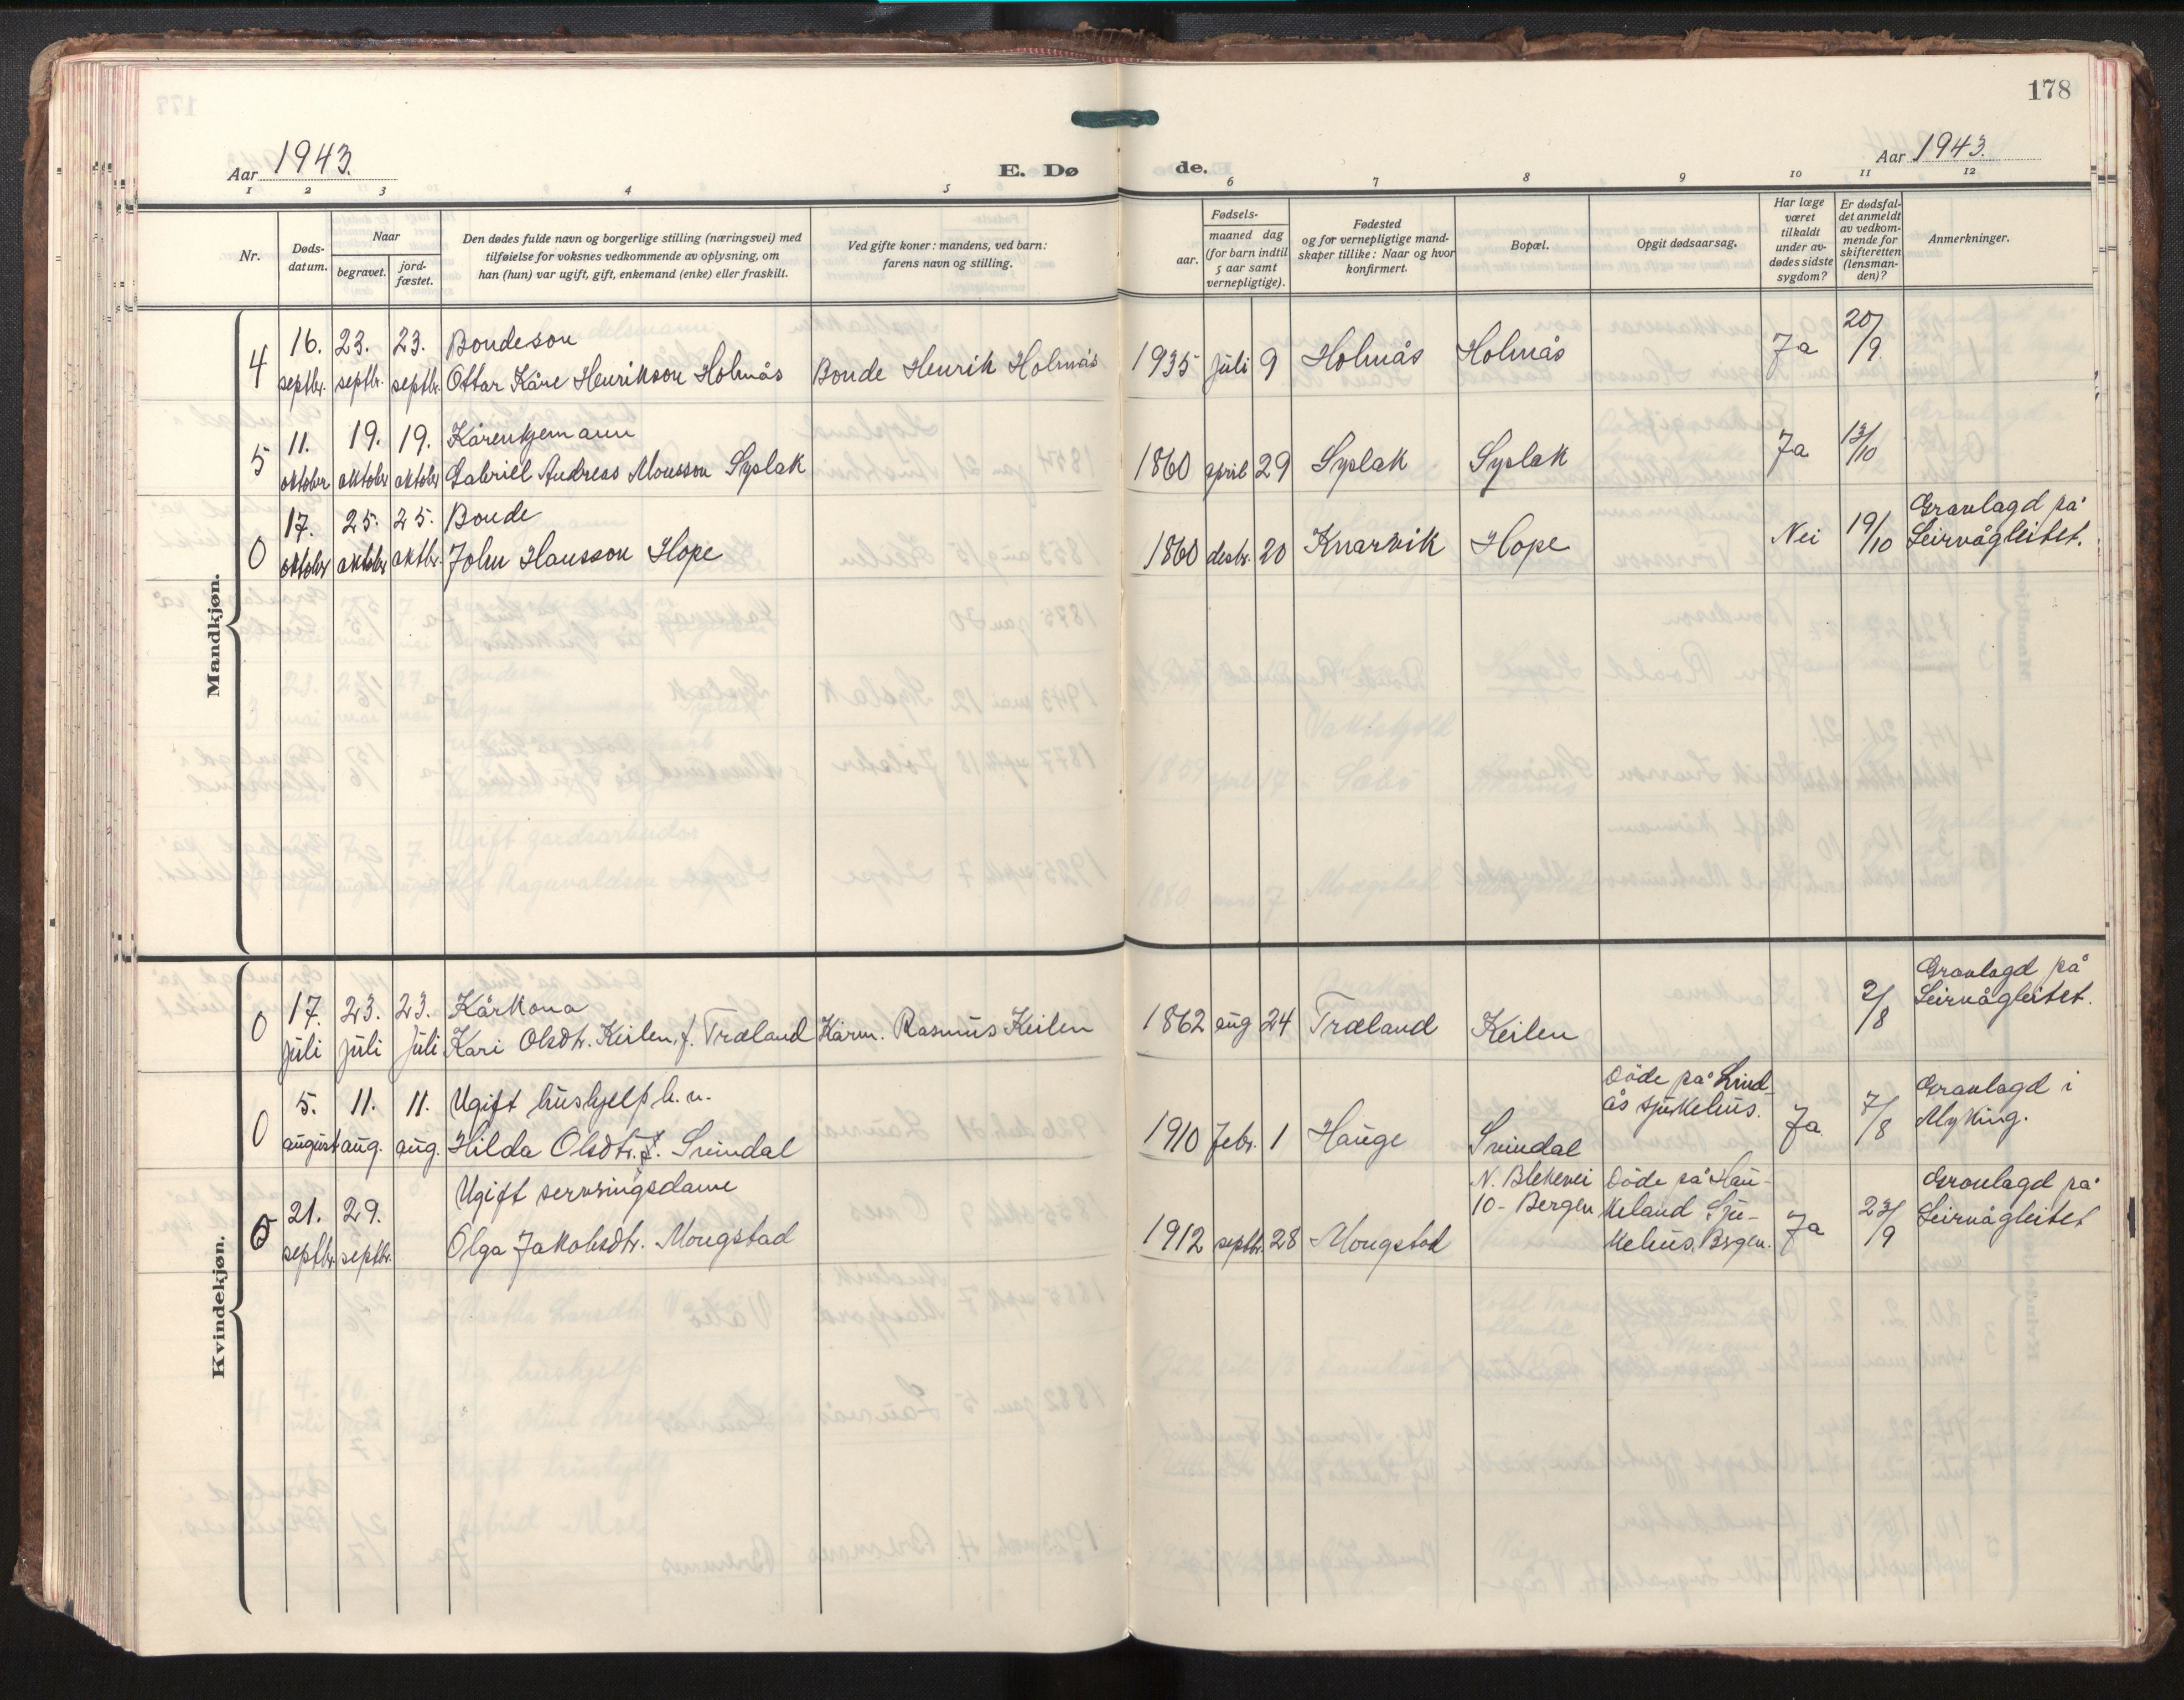 178
Aar 1943.
E. Dø
de.
Aar 1943.
1 2 3 4 5 6 7 8 9 10 11 12
Nr.
Døds-
datum.
Naar
begravet.
jord-
fæstet.
Den dødes fulde navn og borgerlige stilling (næringsvei) med
tilføielse for voksnes vedkommende av oplysning, om
han (hun) var ugift, gift, enkemand (enke) eller fraskilt.
Ved gifte koner: mandens, ved barn:
farens navn og stilling.
Fødsels-
aar.
maaned dag
(for barn indtil
5 aar samt
vernepligtige).
Fødested
og for vernepligtige mand-
skaper tillike: Naar og hvor
konfirmert.
Bopæl.
Opgit dødsaarsag.
Har læge
været
tilkaldt
under av-
dødes sidste
sygdom?
Er dødsfal-
det anmeldt
av vedkom-
mende for
skifteretten
(lensman-
den)?
Anmerkninger.
Mandkjøn.
4 16. septbr. 23. septbr. 23. septbr. Bondeson
Ottar Kåre Henrikson Holmås Bonde Henrik Holmås 1935 juli 9 Holmås Holmås Ja 20/9
5 11. oktober 19. oktober 19. oktober Kårenkjemann
Gabriell Andreas Monsson Syslak 1860 april 29 Syslak Syslak Ja 13/10
0 17. oktober 25. oktober 25. oktbr. Bonde
John Hansson Hope 1860 desbr. 20 Knarvik Hope Nei 19/10 Gravlagd på
Leirvågleitet.
Kvindekjøn.
0 17. juli 23. juli 23. juli Kårkona
Kari Olsdtr. Keilen, f. Træland Kårm. Rasmus Keilen 1862 aug 24 Træland Keilen 2/8 Gravlagd på
Leirvågleitet.
0 5. august 11. aug. 11. aug. Ugift hushjelp h. v.
Hilda Olsdtr. f. Svindal 1910 febr. 1 Hauge Svindal Döde på Lind-
ås sjukehus. Ja 7/8 Gravlagd i
Myking.
21. septbr. 29. septbr. Ugift servringsdame
Olga Jakobsdtr. Mongstad 1912 septbr. 28 Mongstad N. Blekevei
10 - Bergen Döde på Hau-
keland Sju-
kehus. Bergen. Ja 23/9 Gravlagd på
Leirvågleitet